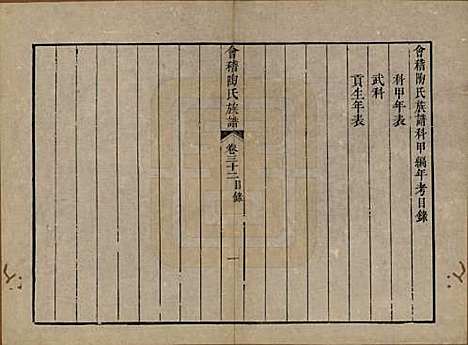 會稽陶氏族譜科甲編年考目錄
科甲年表
武科
貢生年表
會稽陶氏族譜
卷三十二目錄
一